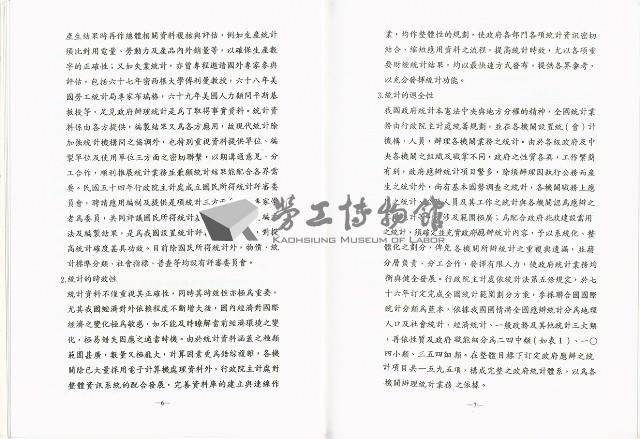 產生結果時再作總體相關資料複核與評估，例如生產統計
須比對用電量、勞動力及產品內外銷量等，以確保生產數
字的正確性；又如失業統計，亦曾專程邀請國外專家參與
評估，包括六十七年密西根大學傅利曼教授，六十八年美
國勞工統計局專家布瑞格，六十九年美國人力顧問辛斯基
教授等，足見政府辦理統計是為了取得事實資料。統計資
料係由各方提供，編製結果又為各方應用，故現代統計除
加強統計機構間之協調外，也特別重視資料提供單位、編
製單位及使用單位三方面之密切聯繫，以期溝通意見，分
工合作，順利推展統計業務並兼顧統計結果能配合各界需
要。民國五十四年行政院主計處成立國民所得統計評審委
員會，聘請應用編制及提供
者為委員，共同評議國民所得統計
法及編製結果，是為我國設置統計評
高統計確度甚具功效。目前除國民所得統計外，物價、統
計標準分類、社會指標、普查等均設有評審委員會。
2.統計的時效性
統計資料不僅重視其正確性，同時其時效性亦極為重要。
尤其我國經濟對外依賴程度不斷增大後，國內經濟對國際
經濟之變化極為敏感，如不能及時瞭解當前經濟環境之變
化，極易錯失因應之適當時機。由於統計資料涵蓋之種類
範圍甚廣，數量又極龐大，計算因素更為錯綜複雜，各機
關除已大量採用電子計算機處理資料外，行政院主計處對
整體資訊系統的配合發展，完善資料庫的建立與連線作
—6—
業，均作整體性的規劃，使政府各部門各項統計資訊密切
結合、縮短應用資料之流程，提高統計時效，尤以各項重
要財經統計結果，均以最快速方式發布，提供各界參考，
以充分發揮統計功能。
3.統計的週全性
我國政府統計本憲法中央與地方分權的精神，全國統計業
務由行政院主計處統籌規劃，並在各機關設置統（會）計
機構，人員，辦理各機關業務之統計。由於各級政府及中
央各機關之組織及職掌不同，政府之性質各異，工作繁簡
有別，政府應辦統計項目繁多，除須辦理因執行公務而產
生之統計外，尚有基本國勢調查之統計，各機關職務上應
用之統計，公務人員及其工作之統計與各機關認為應辦之
涉及範圍極廣；為配合政府兆政建設需用
之統計，須確定並充實政府應辦統計內容，予以系統化、整
體化之劃分，俾免各機關所辦統計之重複與遺漏，並藉
分層負責，分工合作，發揮有限人力，使政府統計業務均
衡與健全發展。行政院主計處依統計法第五條規定，於七
十六年訂定完成全國統計範圍劃分方案，參採聯合國國際
統計分類為藍本，依據我國國情將全國應辦統計分為地理
人口及社會統計、經濟統計、一般政務及其他統計三大類
，再依性質及政府職能細分為二四中類（如表１）、一〇
四小類、三五四細類。在整體目標下訂定政府應辦之統
計項目共一五九五項，構成完整之政府統計體系，以為各
機關辦理統計業務之依據。
—7—
勞工博物館
KAOHSIUNG MUSEUM OF LABOR